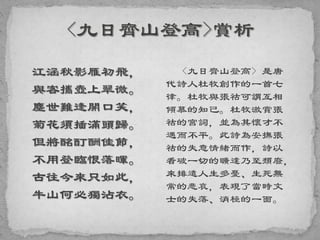 <九日齊山登高>賞析
江涵秋影雁初飛，
與客攜壺上翠微。
塵世難逢開口笑，
菊花須插滿頭歸。
但將酩酊酬佳節，
不用登臨恨落暉。
古往今來只如此，
牛山何必獨沾衣。
<九日齊山登高> 是唐
代詩人杜牧創作的一首七
律。杜牧與張祜可謂互相
傾慕的知已。杜牧激賞張
祜的宮詞，並為其懷才不
遇而不平。此詩為安撫張
祜的失意情緒而作，詩以
看破一切的曠達乃至頹廢，
來排遣人生多憂、生死無
常的悲哀，表現了當時文
士的失落、消極的一面。